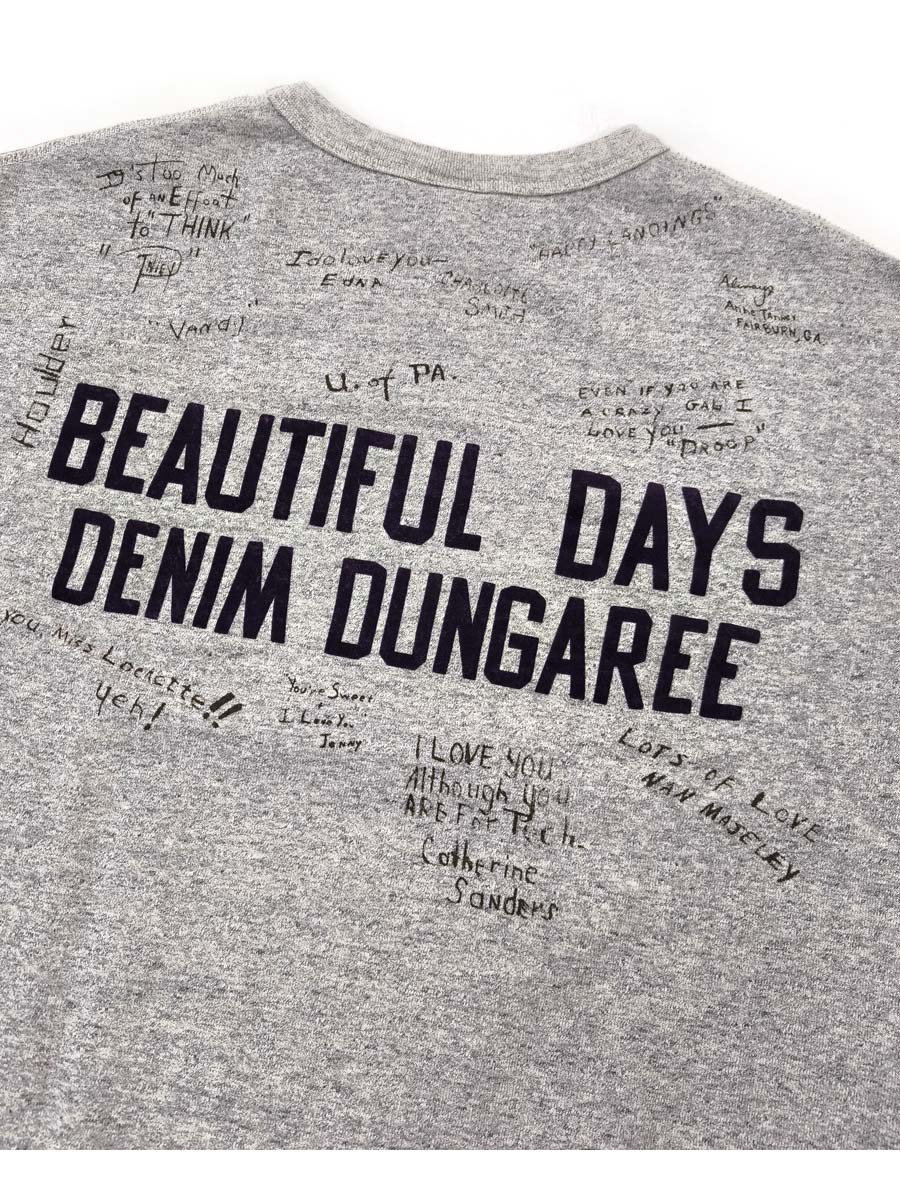 Too Much
of an Effort
to "THINK"
I do love you—
EDNA
CHARLOTTE
"HAPPY LANDINGS"
Always
Anne Tanner
FAIRBURN, GA.
Houlder
U. of PA.
EVEN IF YOU ARE
A CRAZY GAL I
LOVE YOU —
"DROOP"
BEAUTIFUL DAYS
DENIM DUNGAREE
YOU, MISS LOCKETTE!!
Yeh!
You're Sweet
I Love You
Jenny
I LOVE YOU
Although you
ARE For Tech.
Catherine
Sanders
LOTS OF LOVE
NAN